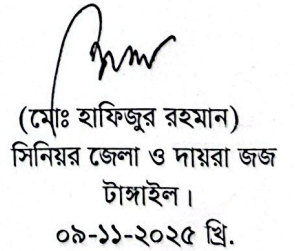 (মোঃ হাফিজুর রহমান)
সিনিয়র জেলা ও দায়রা জজ
টাঙ্গাইল।
০৯-১১-২০২৫ খ্রি.